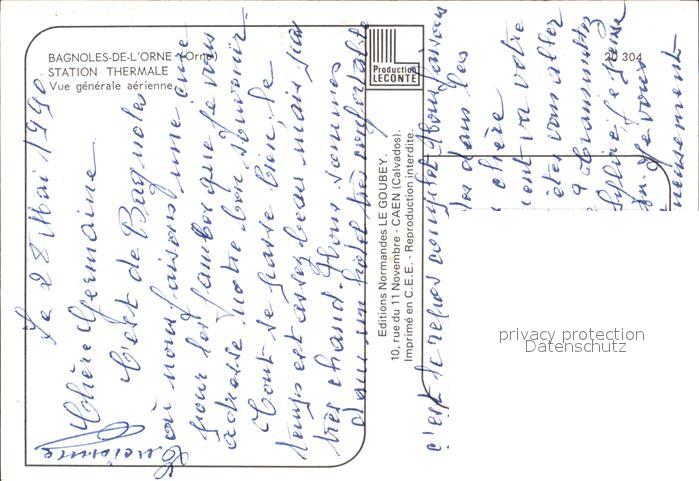 BAGNOLES-DE-L'ORNE (Orne)
STATION THERMALE
Vue générale aérienne
Production
LECONTE
20 304
Editions Normandes LE GOUBEY.
10, rue du 11 Novembre - CAEN (Calvados).
Imprimé en C.E.E. - Reproduction interdite.
Le 28 Mai 1990
Chère Germaine
C'est de Bagnoles
où nous faisons une cure
pour les jambes que je vous
adresse notre bon souvenir.
Tout se passe bien, le
temps est assez beau mais pas
très chaud. Nous sommes
dans un hôtel très confortable
c'est le repos complet. Nous faisons
dans les
chère
ont va votre
êtes vous aller
transmettez
Sylvie et
Je vous
Lucienne
privacy protection
Datenschutz